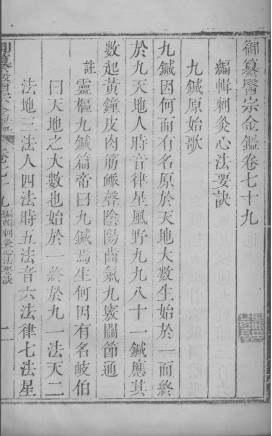 御纂醫宗金鑑卷七十九
編輯刺灸心法要訣
九鍼原始歌
九鍼因何而有名原於天地大數生始於一而終
於九天地人時音律星風野九九八十一鍼應其
數起黃鐘皮肉筋脈聲陰陽齒氣九竅關節通
註靈樞九鍼篇帝曰九鍼焉生何因有名岐伯
曰天地之大數也始於一終於九一法天二
法地三法人四法時五法音六法律七法星
御纂醫宗金鑑
卷七十九
編輯刺灸心法要訣
一